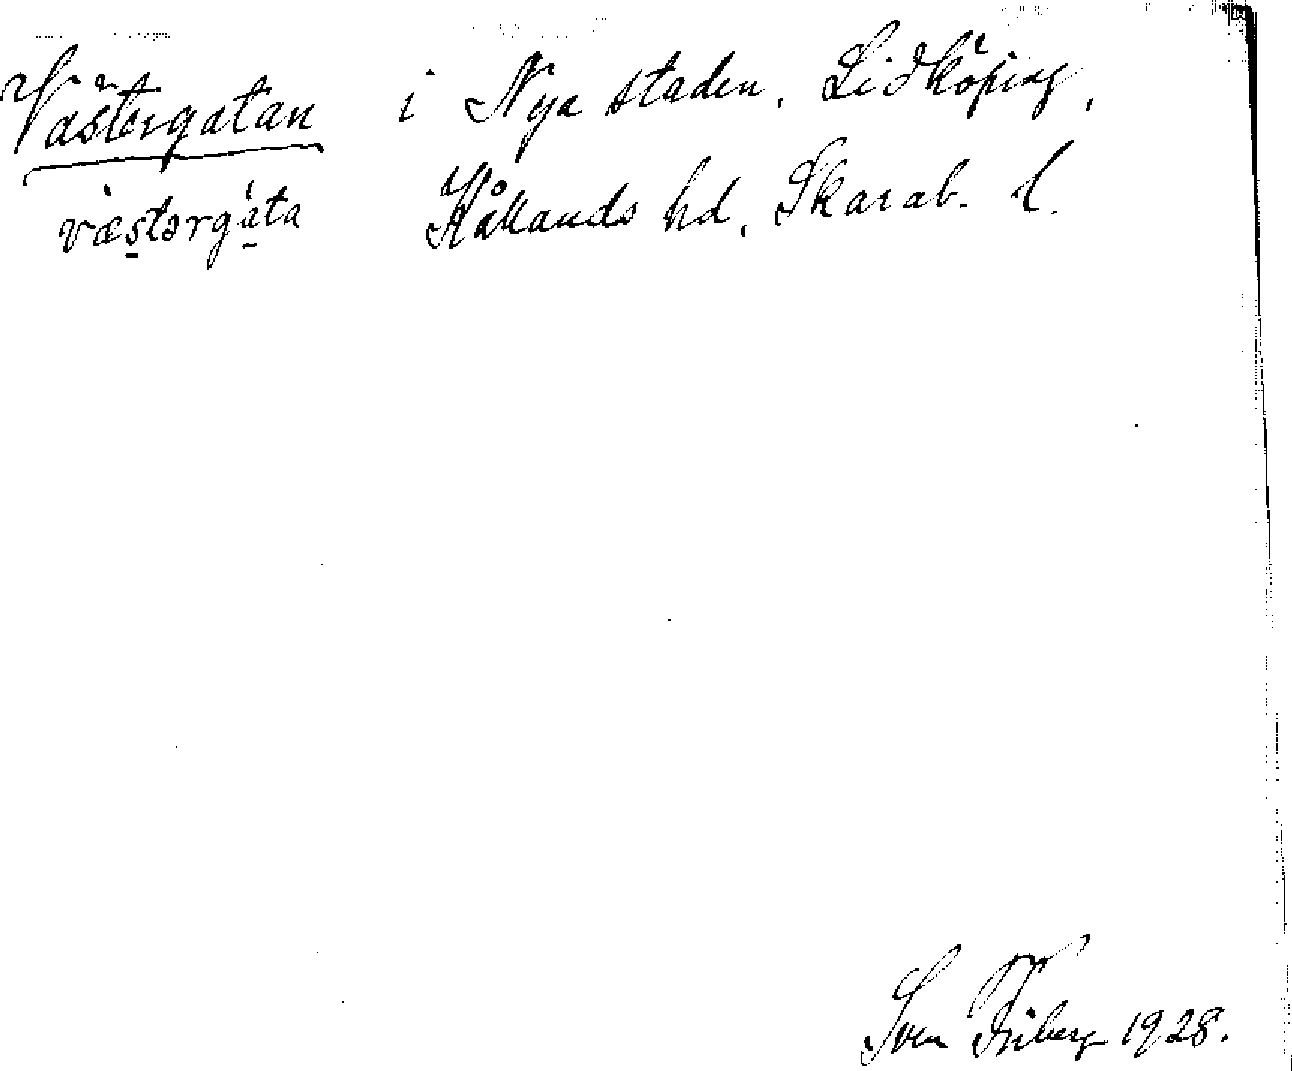 Västergatan i Nya staden, Lidköping,
væstərgáta Kållands hd, Skarab. l.
Sven Friberg 1928.